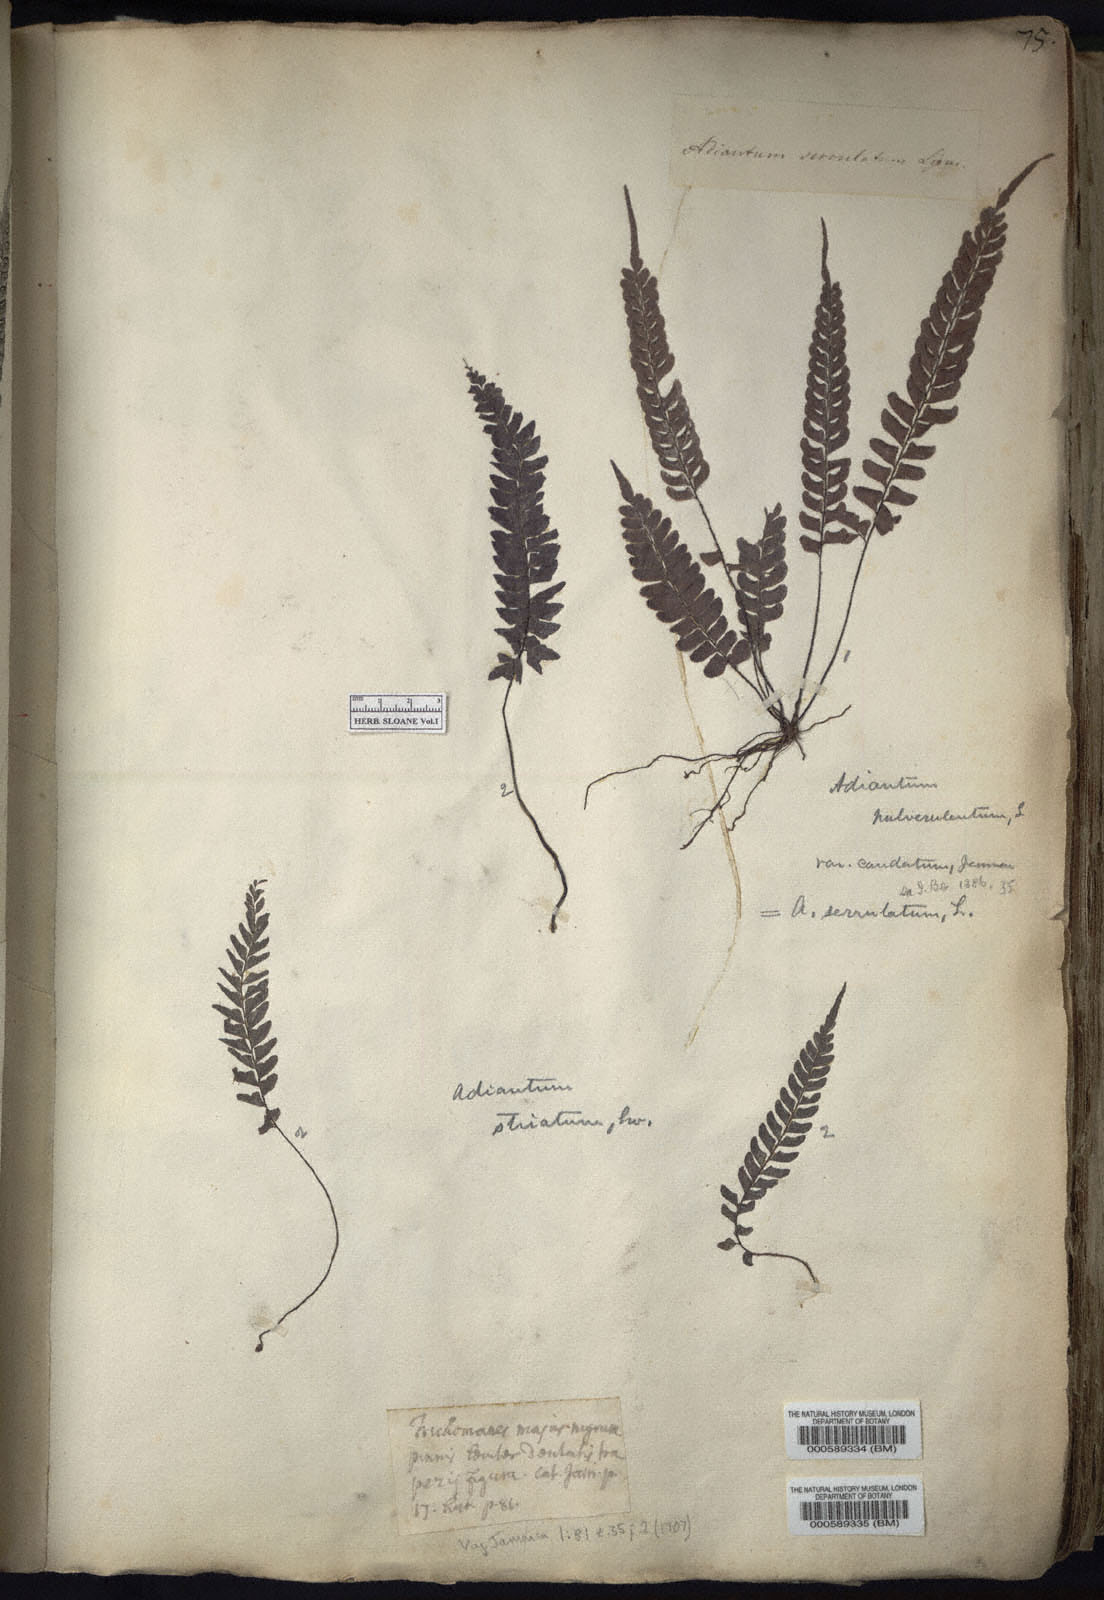 75.
Adiantum serrulatum Linn.
mm 1 2 3
HERB. SLOANE Vol.I
1
2
Adiantum
pulverulentum, L
var. caudatum, Jenman
1886. 35
= A. serrulatum, L.
2
Adiantum
striatum, Sw.
2
Trichomanes majus nigrum
pinnis dentatis tra
pezij figura. Cat. Jam. p.
17. p. 86.
Voy Jamaica 1: 81 t. 35 f 2 (1707)
THE NATURAL HISTORY MUSEUM, LONDON
DEPARTMENT OF BOTANY
000589334 (BM)
THE NATURAL HISTORY MUSEUM, LONDON
DEPARTMENT OF BOTANY
000589335 (BM)